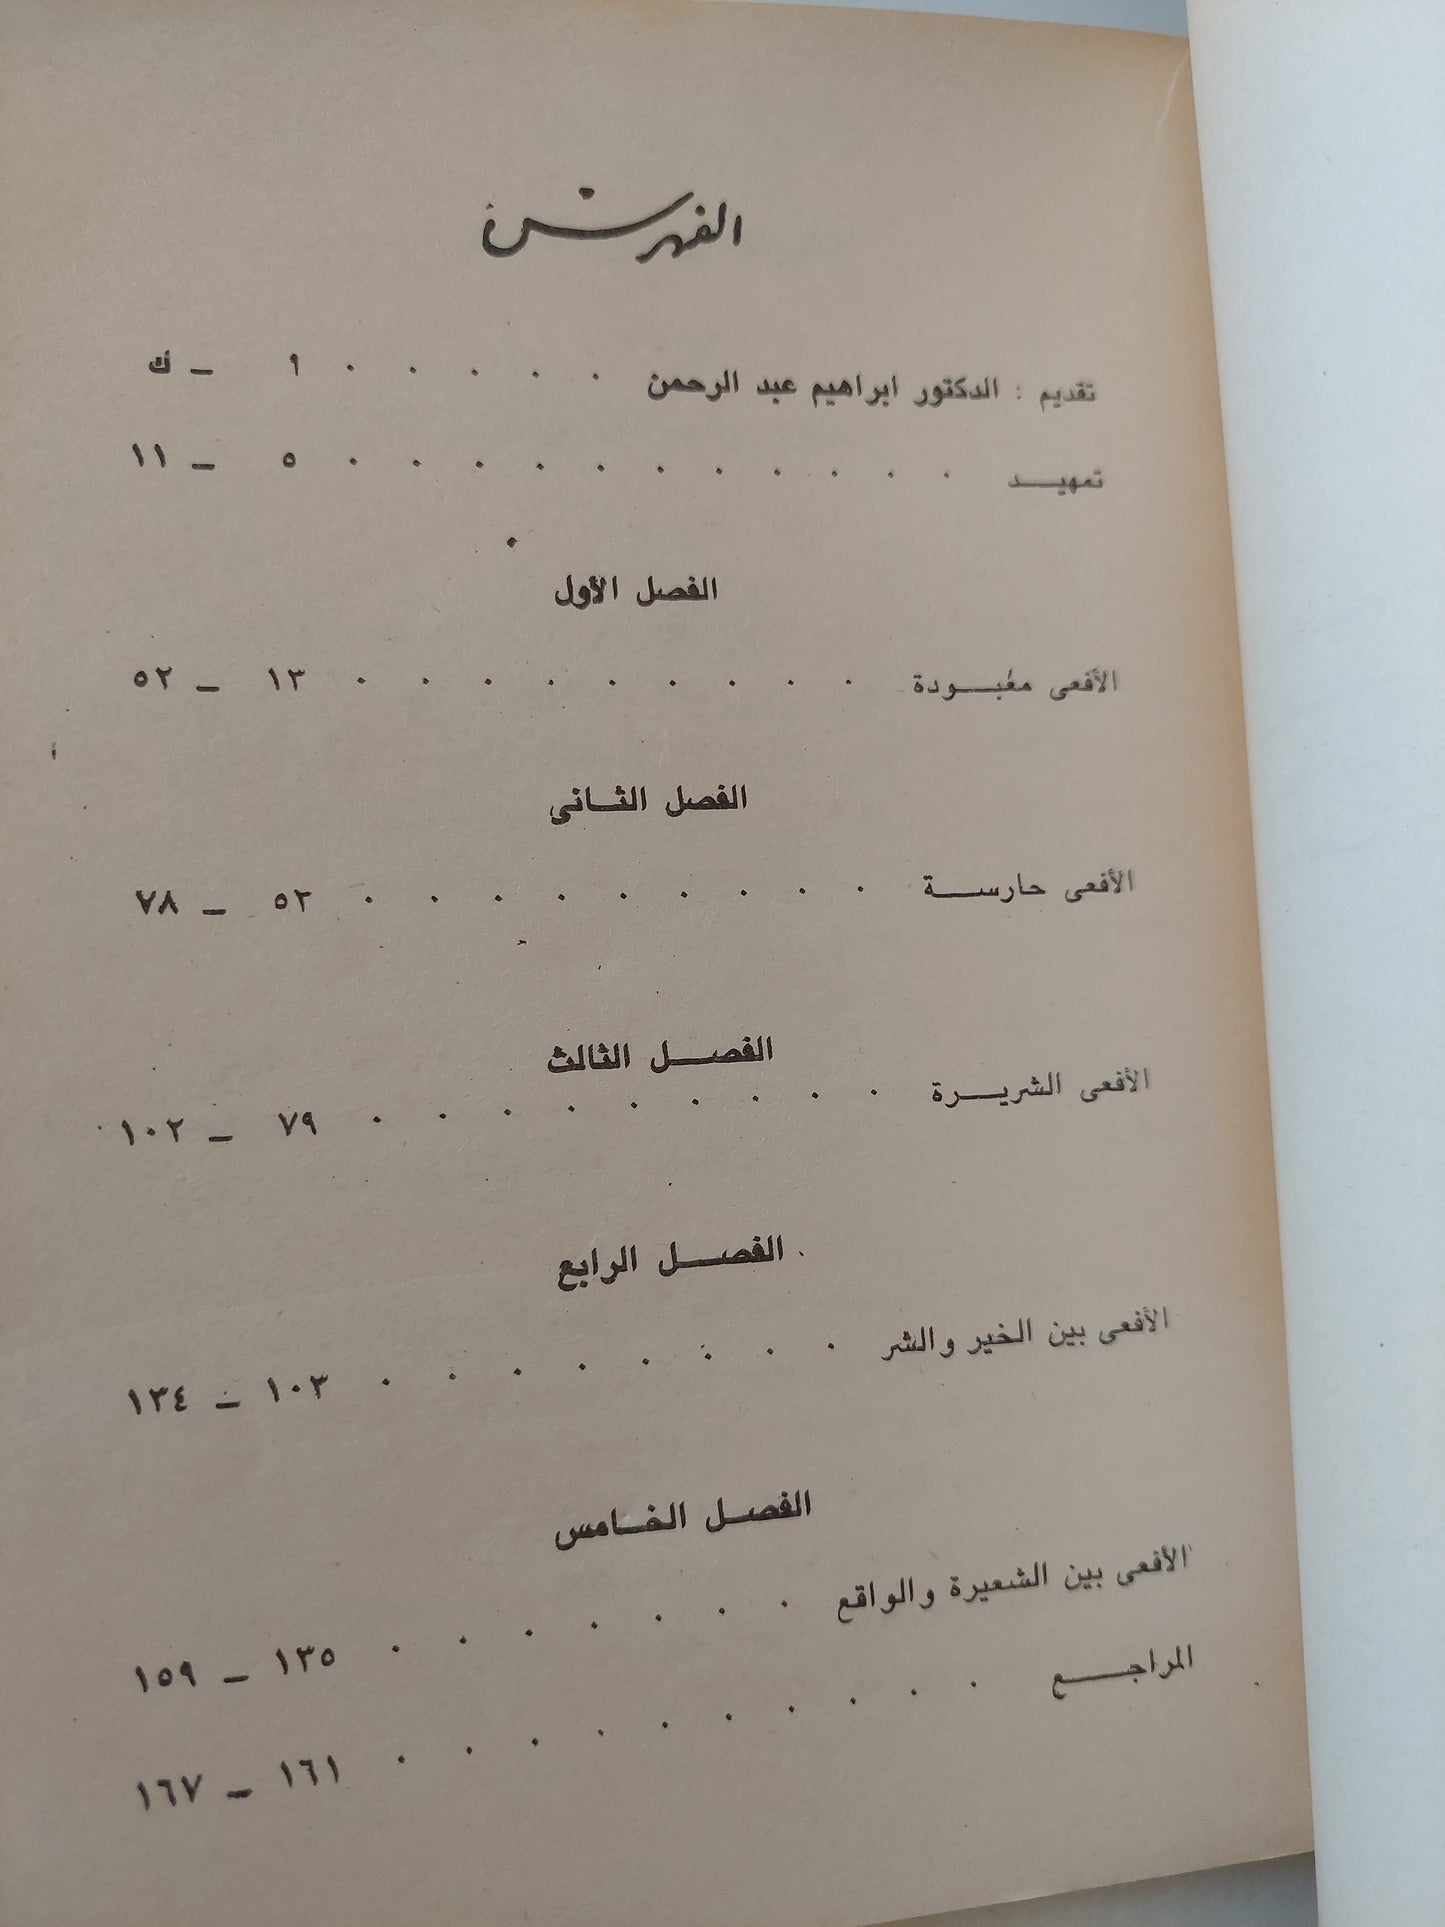 الفهرس
تقديم : الدكتور ابراهيم عبد الرحمن . . . . . ٩ - ك
تمهيد . . . . . . . . . . . ٥ - ١١
الفصل الأول
الأفعى معبودة . . . . . . . . . ١٣ - ٥٢
الفصل الثانى
الأفعى حارسة . . . . . . . . . ٥٣ - ٧٨
الفصل الثالث
الأفعى الشريرة . . . . . . . . . ٧٩ - ١٠٢
الفصل الرابع
الأفعى بين الخير والشر . . . . . . . . ١٠٣ - ١٣٤
الفصل الخامس
الأفعى بين الشعيرة والواقع . . . . . . . ١٣٥ - ١٥٩
المراجع . . . . . . . . . . ١٦١ - ١٦٧